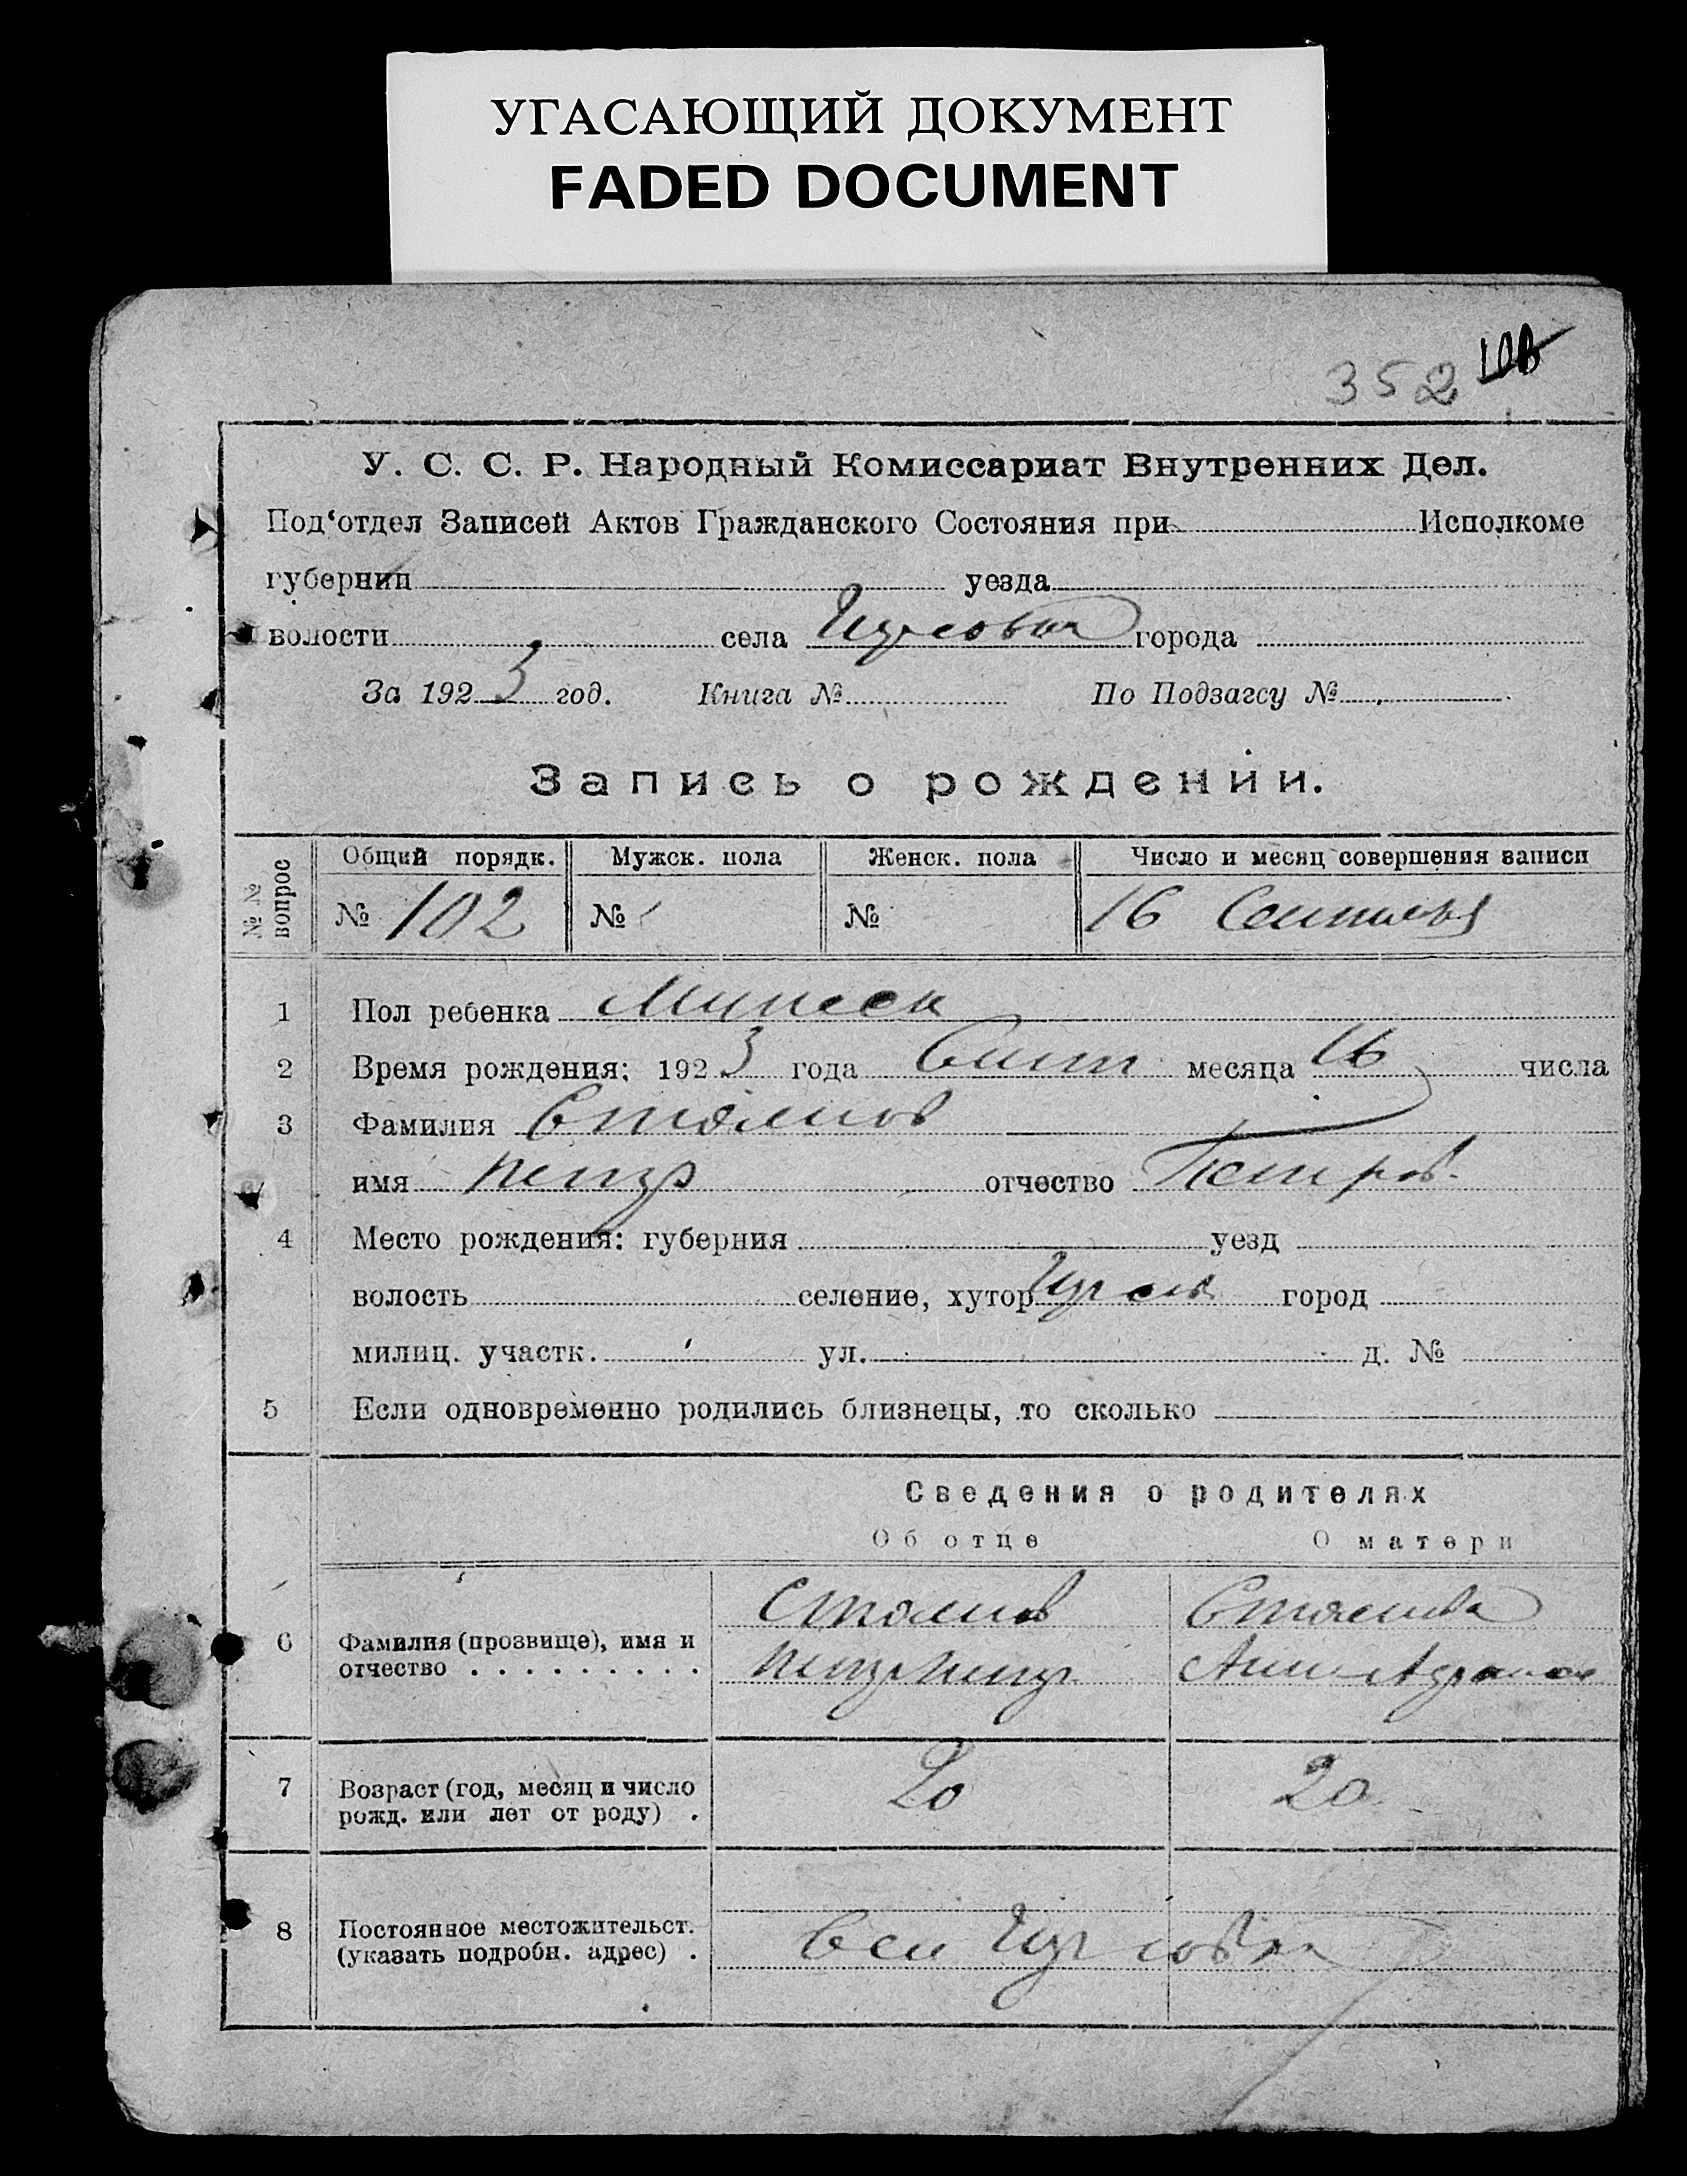 УГАСАЮЩИЙ ДОКУМЕНТ
FADED DOCUMENT
352
У. С. С. Р. Народный Комиссариат Внутренних Дел.
Под‘отдел Записей Актов Гражданского Состояния при Исполкоме
губернии уезда
волости села города
За 1923 год. Книга № По Подзагсу №
Запись о рождении.
№№ вопрос
Общий порядк. Мужск. пола Женск. пола Число и месяц совершения записи
№ 102 № № 16 Сентября
1 Пол ребенка
2 Время рождения: 1923 года Сент месяца 16 числа
3 Фамилия Стоянов
имя Петр отчество Петров.
4 Место рождения: губерния уезд
волость селение, хутор город
милиц. участк. ул. д. №
5 Если одновременно родились близнецы, то сколько
Сведения о родителях
Об отце О матери
Стоянов Стоянова
6 Фамилия (прозвище), имя и
отчество . . . . . . . . . Петр Петр. Анна
7 Возраст (год, месяц и число 20 20
рожд. или лет от роду) .
8 Постоянное местожительст.
(указать подробн. адрес) .